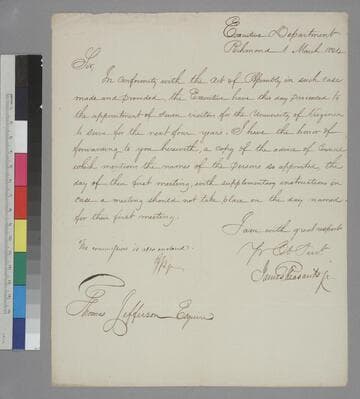 Executive Department
Richmond 1 March 1824
Sir,
In conformity with the Act of Assembly in such case
made and provided, the Executive have this day proceeded to
the appointment of seven visitors for the University of Virginia
to serve for the next four years. I have the honor of
forwarding to you herewith, a copy of the advice of Council
which mentions the names of the persons so appointed, the
day of their first meeting, with supplementary instructions in
case a meeting should not take place on the day named
for their first meeting.
I am with great respect
Yr Ob Servt
James Pleasants Jr
The commission is also enclosed.
Thomas Jefferson Esquire